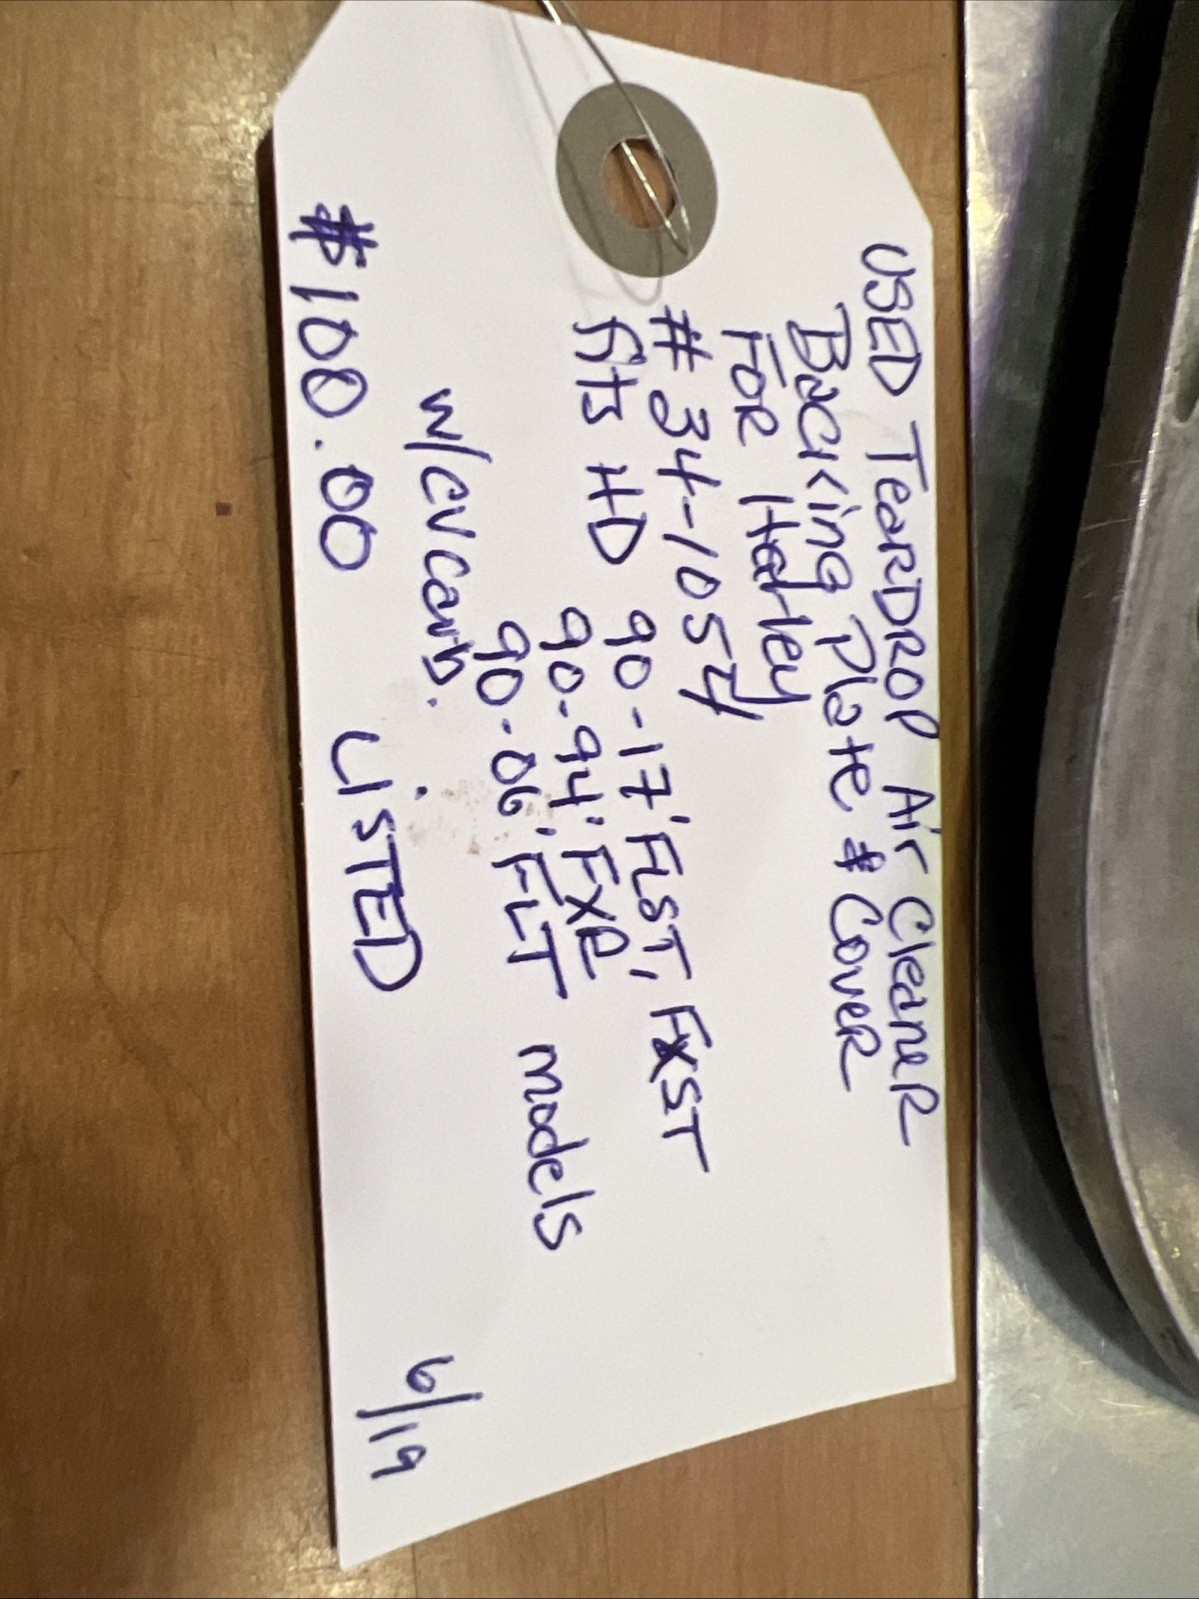 USED TearDROP Air CleaneR
Backing Plate & CoveR
FOR Harley
# 34-1054
fits HD 90-17' FLST, FXST
90-94' FXR
90-06' FLT models
w/CV Carb.
$100.00 LiSTED
6/19